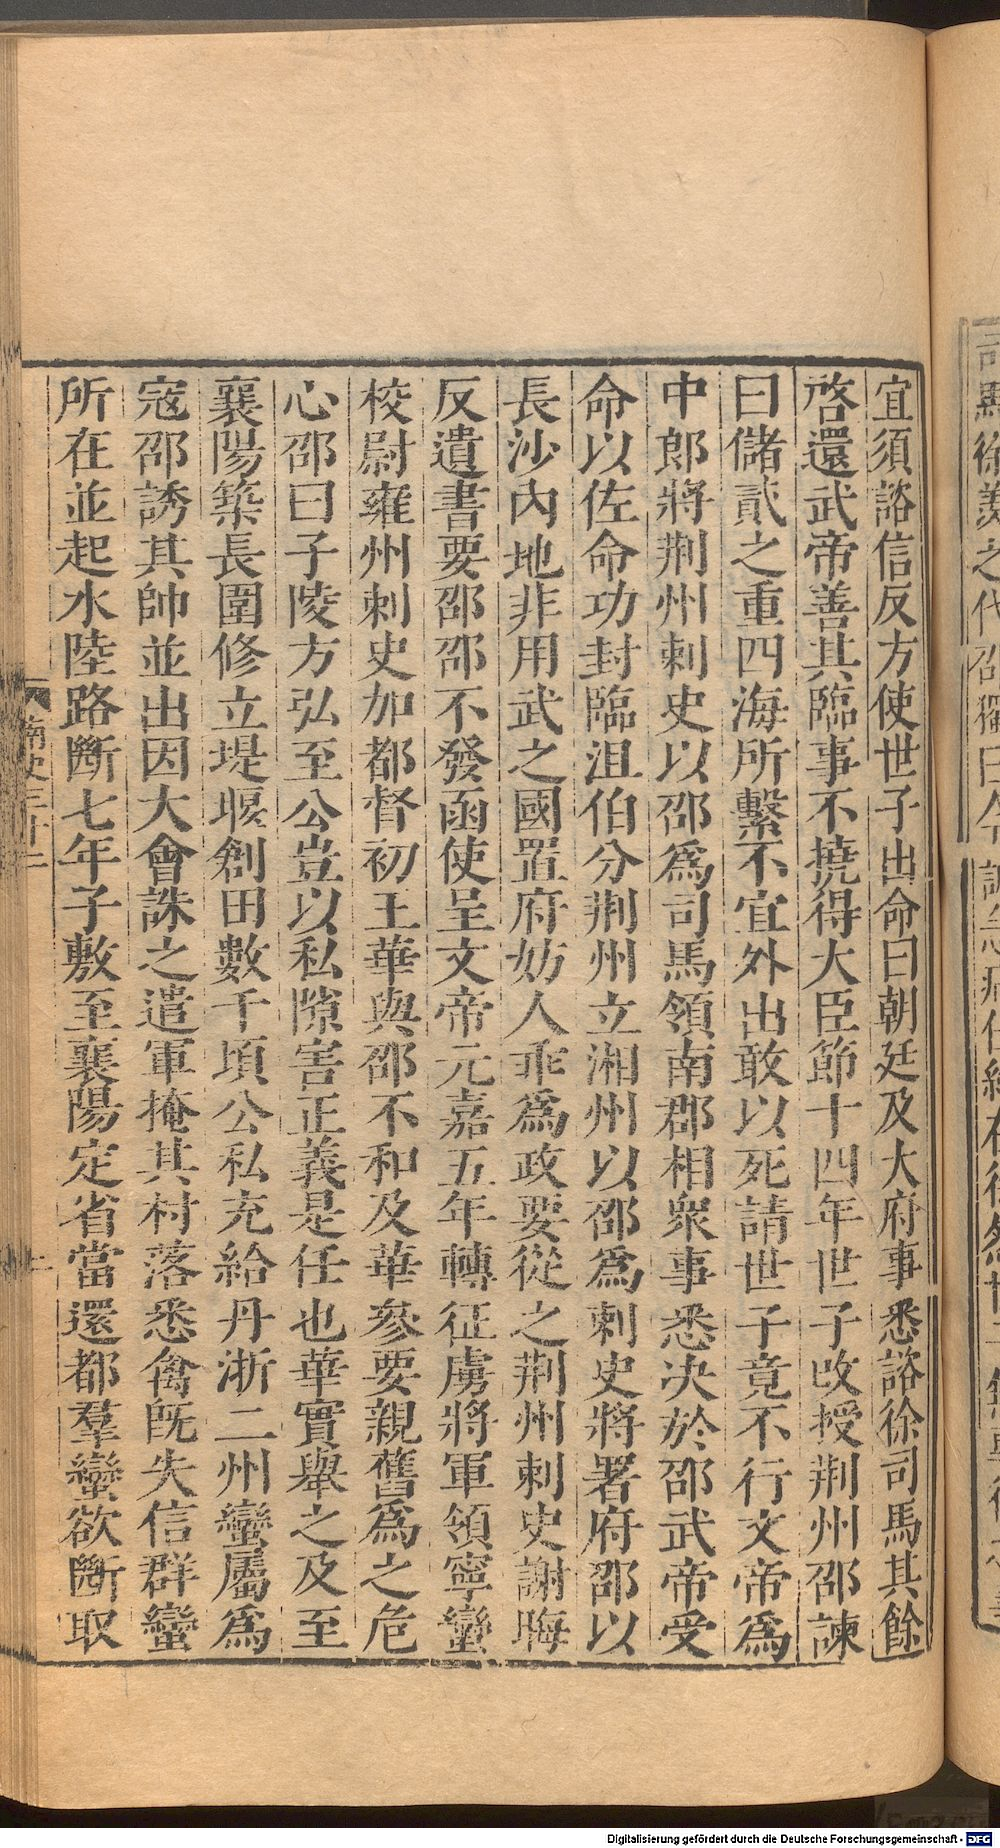 宜須諮信反方使世子出命曰朝廷及大府事悉諮徐司馬其餘
啓還武帝善其臨事不撓得大臣節十四年世子改授荆州邵諫
曰儲貳之重四海所繫不宜外出敢以死請世子竟不行文帝爲
中郎將荆州刺史以邵爲司馬領南郡相衆事悉决於邵武帝受
命以佐命功封臨沮伯分荆州立湘州以邵爲刺史將署府邵以
長沙內地非用武之國置府妨人乖爲政要從之荆州刺史謝晦
反遺書要邵邵不發函使呈文帝元嘉五年轉征虜將軍領寧蠻
校尉雍州刺史加都督初王華與邵不和及華參要親舊爲之危
心邵曰子陵方弘至公豈以私隙害正義是任也華實舉之及至
襄陽築長圍修立堤堰創田數千頃公私充給丹浙二州蠻屬爲
寇邵誘其帥並出因大會誅之遣軍掩其村落悉禽旣失信群蠻
所在並起水陸路斷七年子敷至襄陽定省當還都羣蠻欲斷取
南史三十二
Digitalisierung gefördert durch die Deutsche Forschungsgemeinschaft - DFG